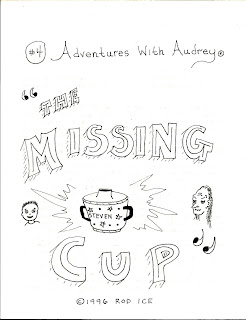 #4 Adventures With Audrey®
“THE
MISSING
STEVEN
CUP”
©1996 ROD ICE